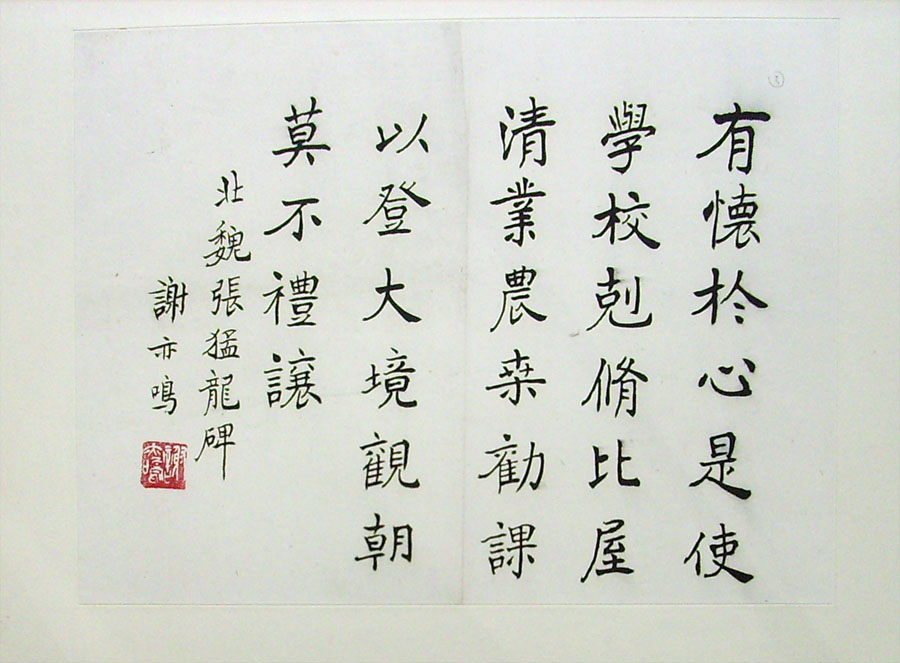 有懷於心是使
學校剋脩比屋
清業農桒勸課
以登大境觀朝
莫不禮讓
北魏張猛龍碑
謝亦鳴